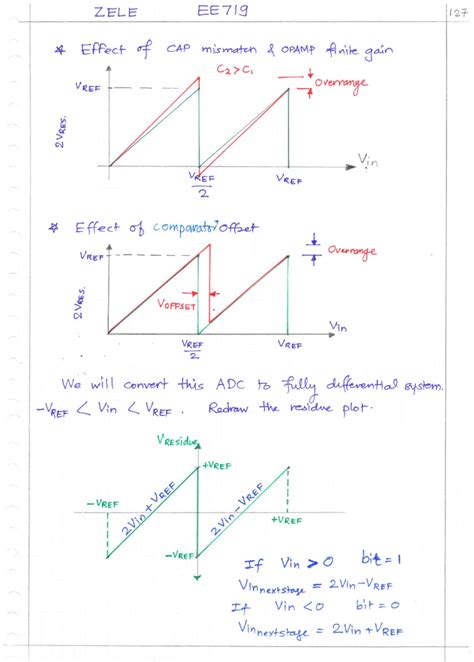 ZELE EE719 127
* Effect of CAP mismatch & OPAMP finite gain
C2>C1
Overrange
VREF
2VRES.
Vin
VREF/2
VREF
* Effect of comparator offset
VREF
Overrange
2VRES.
VOFFSET
Vin
VREF/2
VREF
We will convert this ADC to fully differential system.
-VREF < Vin < VREF. Redraw the residue plot.
VResidue
+VREF
-VREF
2Vin+VREF
2Vin-VREF
+VREF
-VREF
If Vin > 0 bit = 1
Vinnextstage = 2Vin-VREF
If Vin < 0 bit = 0
Vinnextstage = 2Vin+VREF